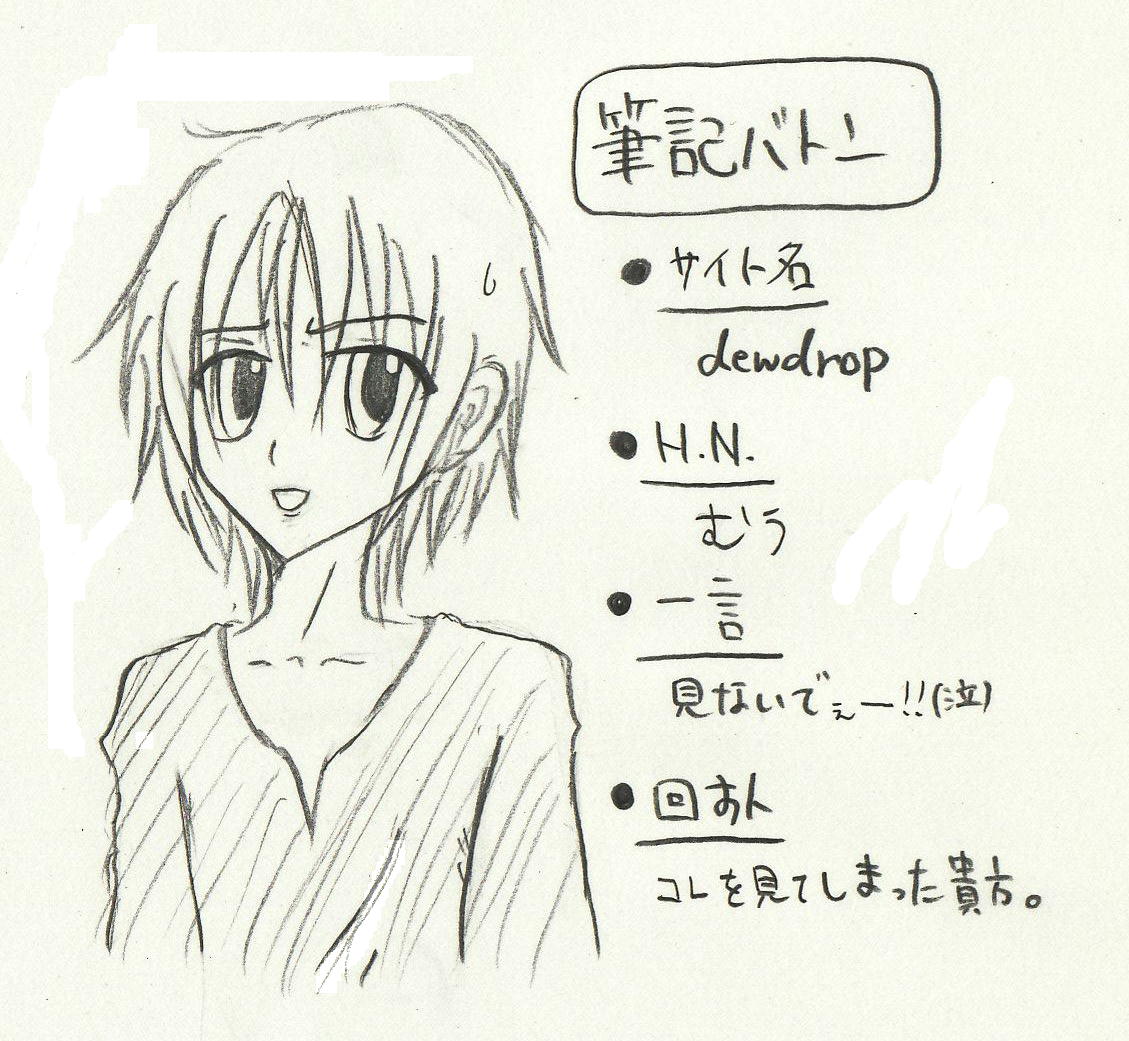 筆記バトン
● サイト名
dewdrop
● H.N.
むう
● 一言
見ないでぇー!!(泣)
● 回す人
コレを見てしまった貴方。